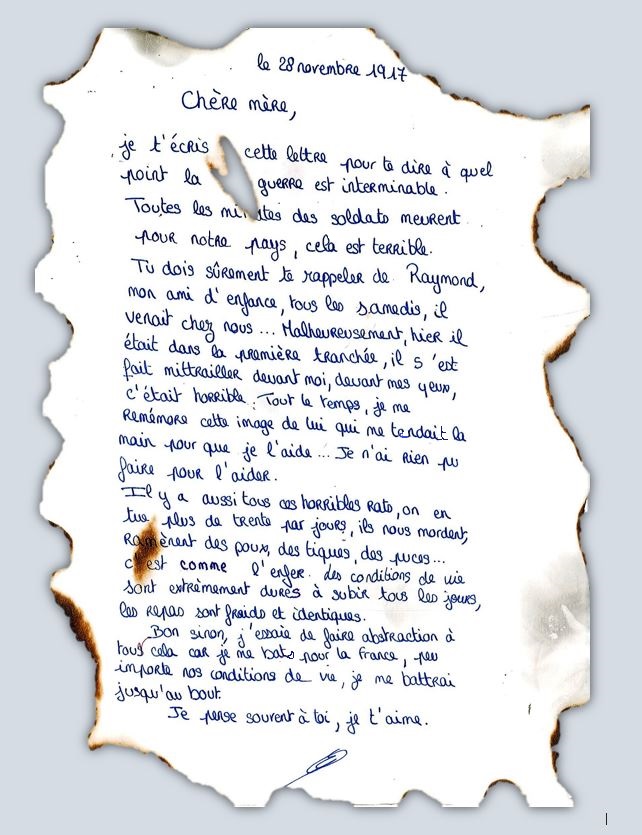 le 28 novembre 1917
Chère mère,
je t'écris cette lettre pour te dire à quel
point la guerre est interminable.
Toutes les minutes des soldats meurent
pour notre pays, cela est terrible.
Tu dois sûrement te rappeler de Raymond,
mon ami d'enfance, tous les samedis, il
venait chez nous... Malheureusement, hier il
était dans la première tranchée, il s'est
fait mittrailler devant moi, devant mes yeux,
c'était horrible. Tout le temps, je me
remémore cette image de lui qui me tendait la
main pour que je l'aide... Je n'ai rien pu
faire pour l'aider.
Il y a aussi tous ces horribles rats, on en
tue plus de trente par jours, ils nous mordent,
ramènent des poux, des tiques, des puces...
c'est comme l'enfer. des conditions de vie
sont extrêmement dures à subir tous les jours,
les repas sont froids et identiques.
Bon sinon, j'essaie de faire abstraction à
tous cela car je me bats pour la France, peu
importe nos conditions de vie, je me battrai
jusqu'au bout.
Je pense souvent à toi, je t'aime.